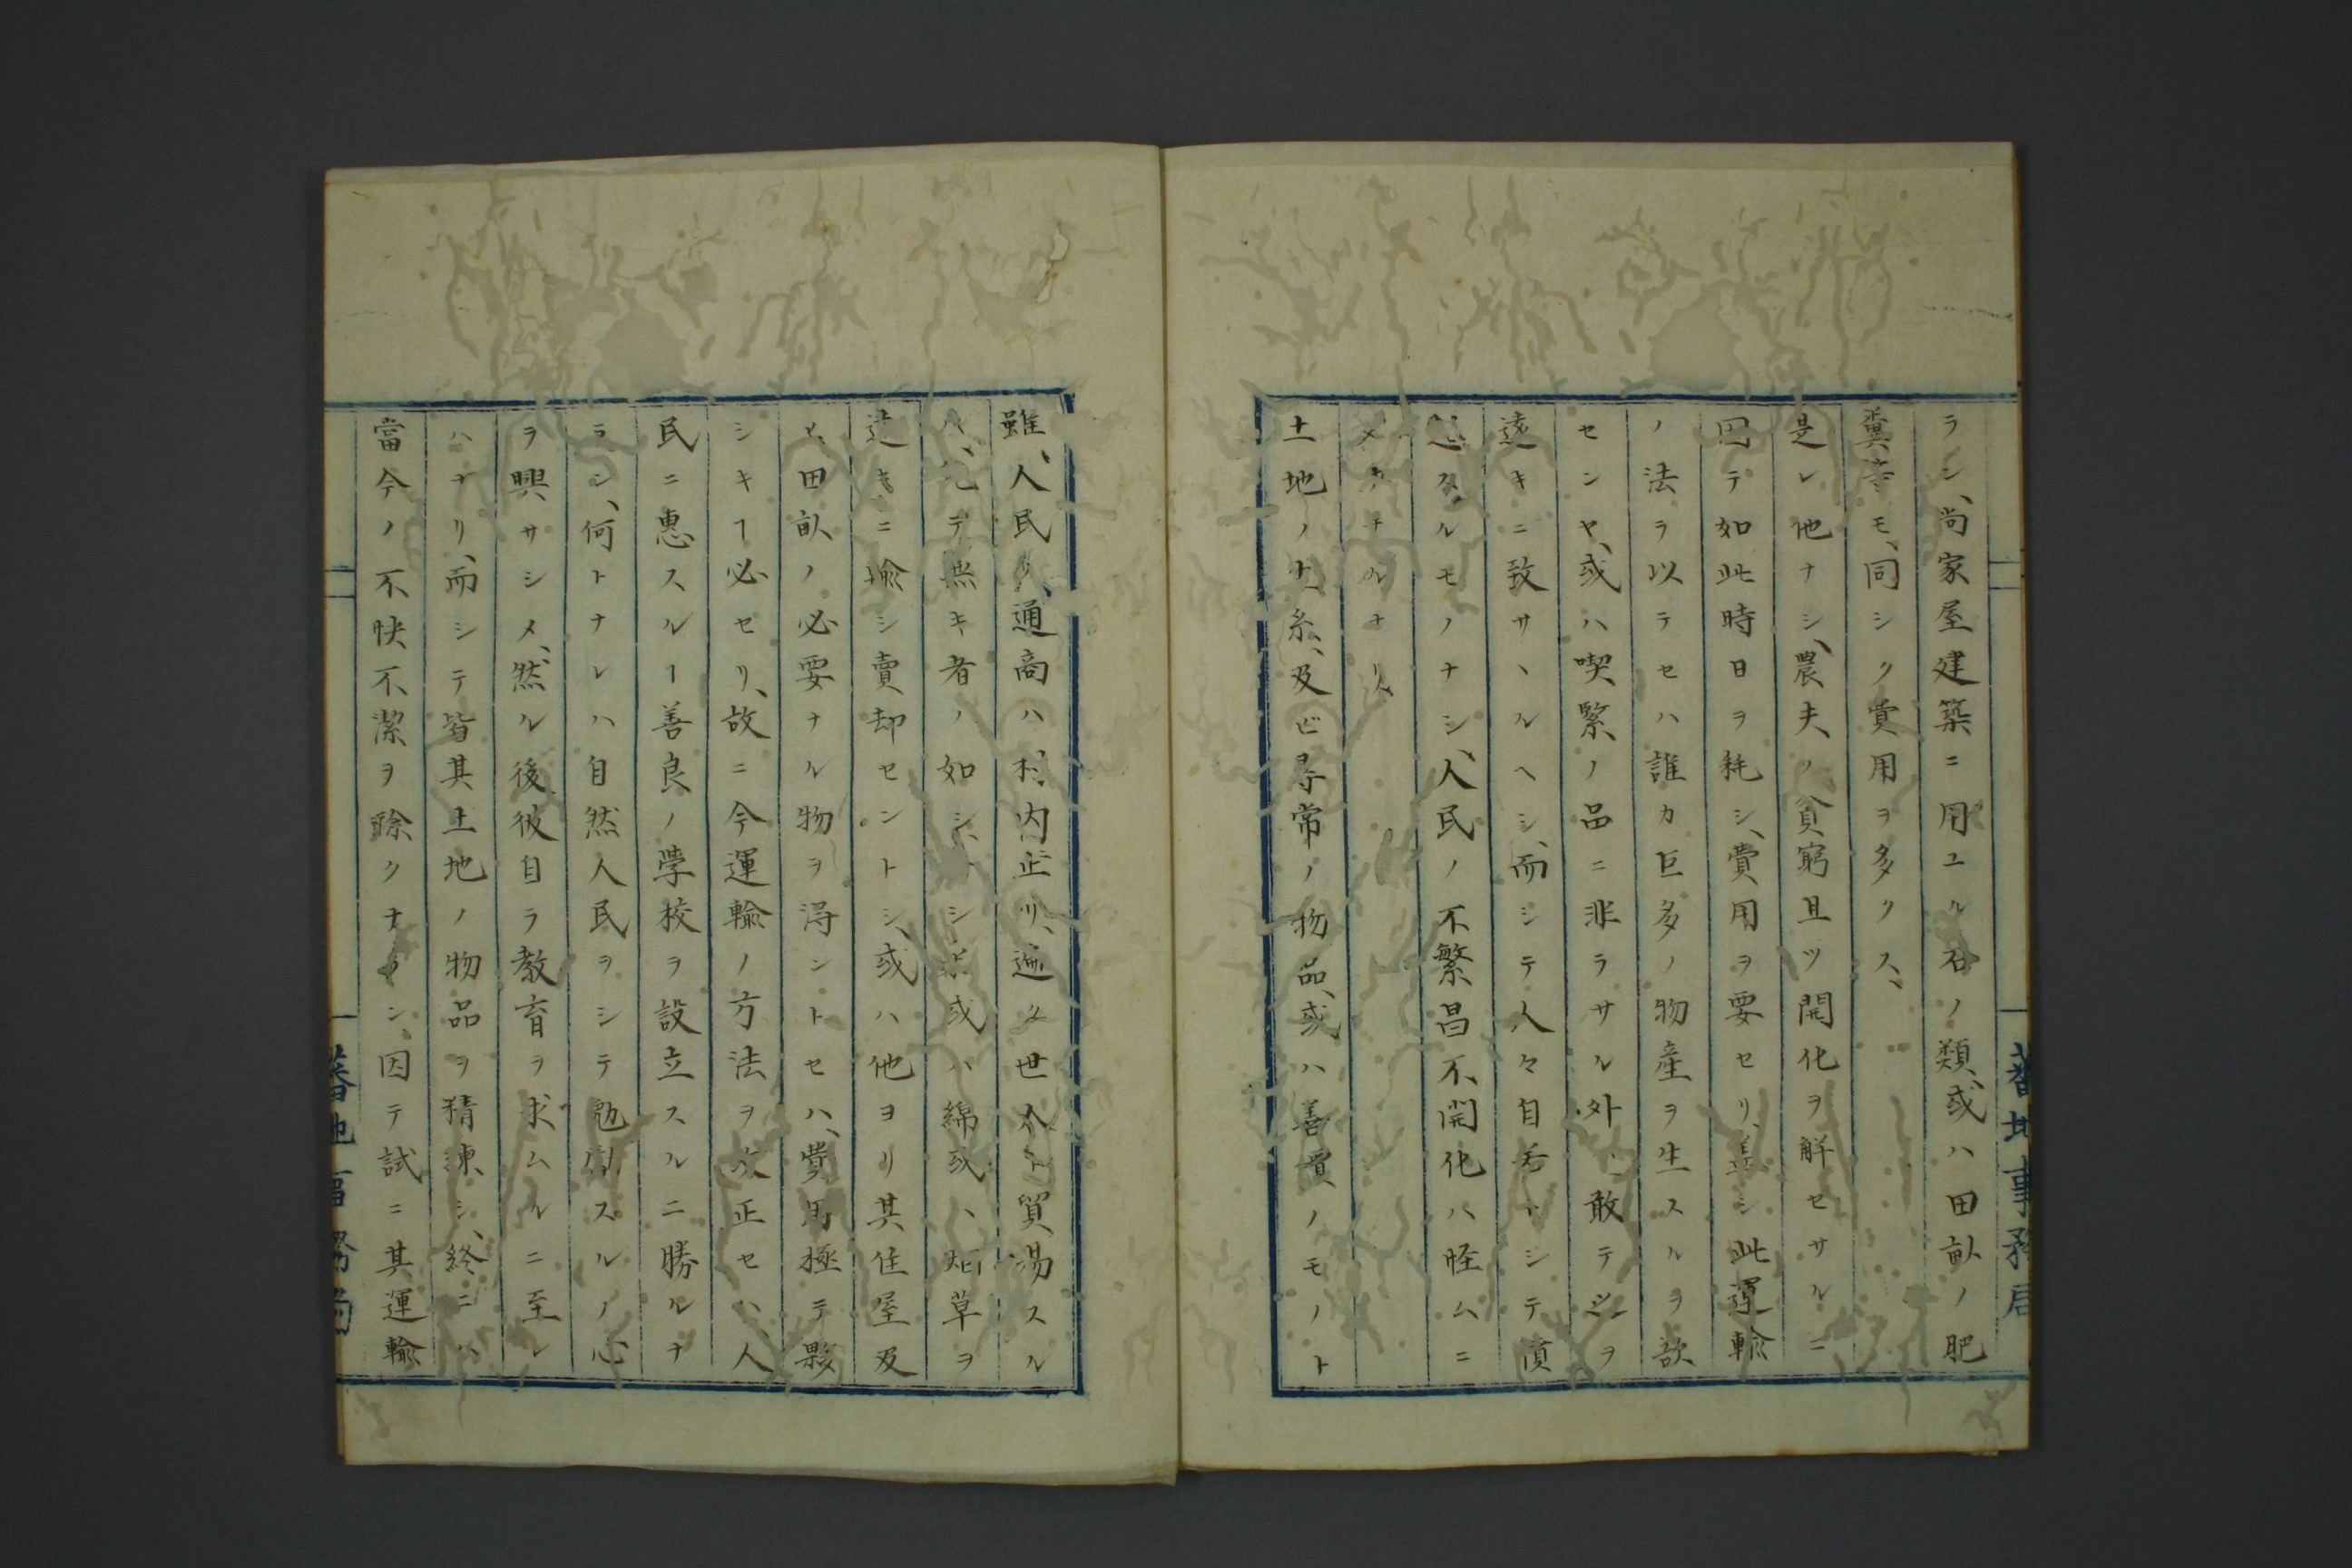 ラシ、尚家屋建築ニ用ユル石ノ類、或ハ田畝ノ肥
糞等モ、同シク費用ヲ多クス、
是レ他ナシ、農夫ノ貧窮且ツ開化ヲ解セサルニ
因テ如此時日ヲ耗シ、費用ヲ要セリ、蓋シ此運輸
ノ法ヲ以テセハ誰カ巨多ノ物産ヲ生スルヲ欲
センヤ、或ハ喫緊ノ品ニ非ラサル外、敢テ之ヲ
遠キニ致サヽルヘシ、而シテ人々自若トシテ憤
スルモノナシ、人民ノ不繁昌不開化ハ怪ムニ
ナルナリ、
土地ノ生糸、及ビ尋常ノ物品、或ハ善貴ノモノト
雖、人民ノ通商ハ村内ニ止リ、遍ク世人ト貿易スル
ハ、テ無キ者ノ如シ、シ米或ハ綿或ハ烟草ヲ
遠キニ輸シ賣却セントシ、或ハ他ヨリ其住屋及
ヒ田畝ノ必要ナル物ヲ得ントセハ、費用極テ夥
シキヿ必セリ、故ニ今運輸ノ方法ヲ改正セハ、人
民ニ惠スルヿ善良ノ學校ヲ設立スルニ勝ルナ
ラン、何トナレハ自然人民ヲシテ勉勵スルノ心
ヲ興サシメ、然ル後彼自ラ教育ヲ求ムルニ至レ
ハナリ、而シテ皆其土地ノ物品ヲ精練シ、終ニハ
當今ノ不快不潔ヲ除クナラン、因テ試ニ其運輸
蕃地事務局
蕃地事務局